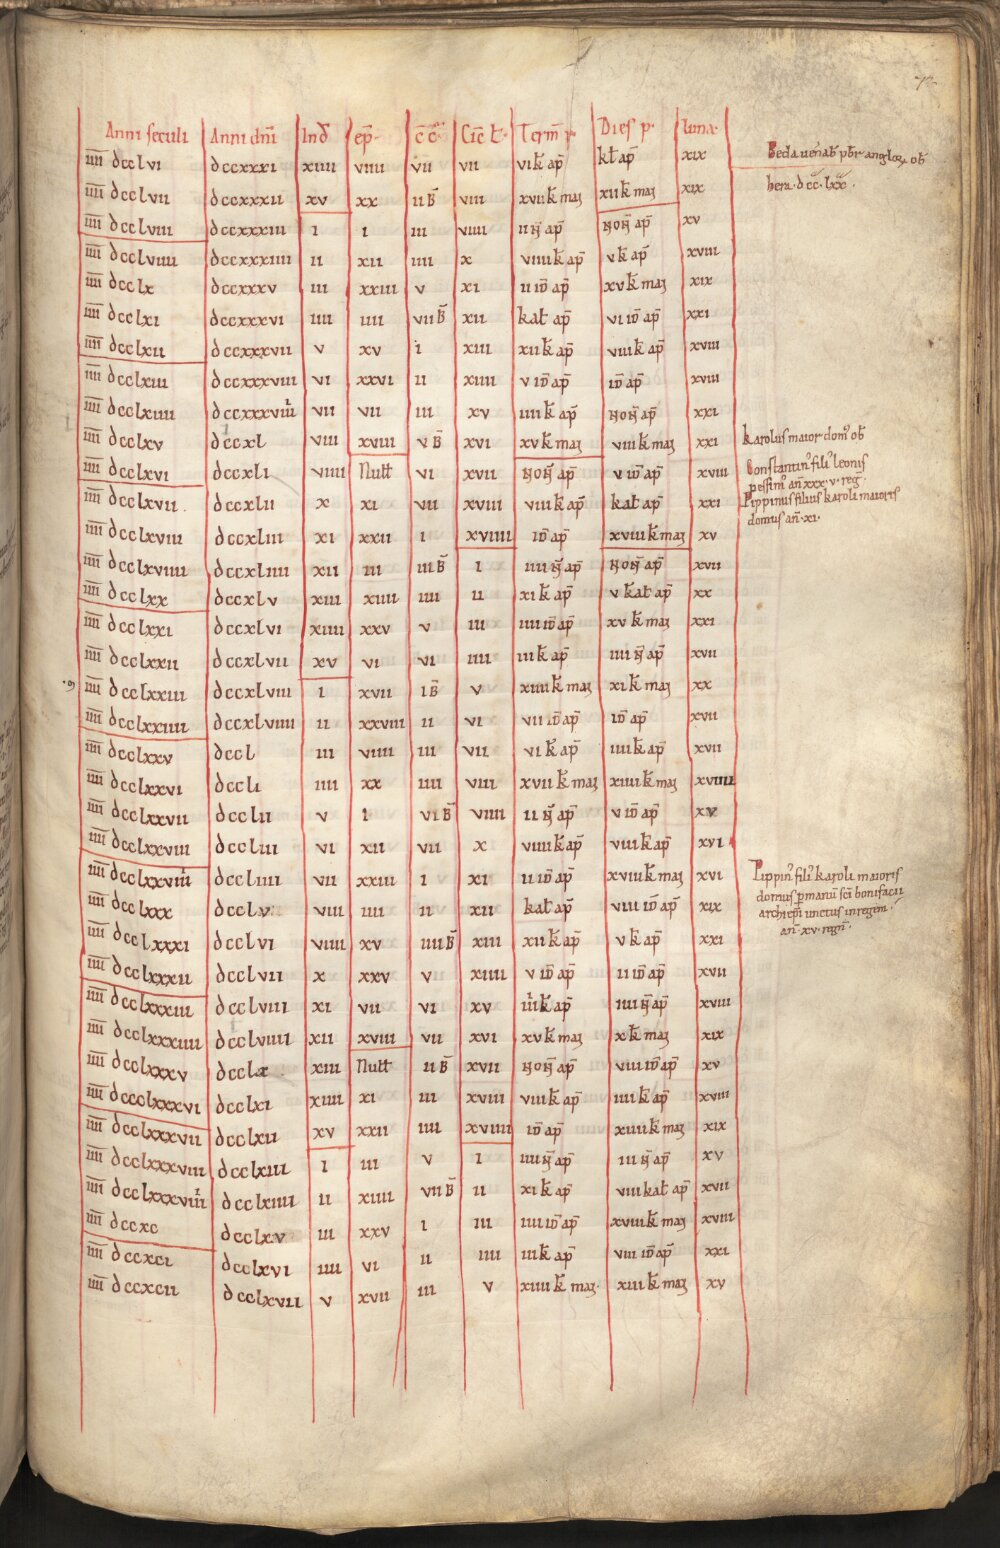 72
Anni seculi Anni dnī Ind ep̄ c̄c̄ Cic̄ l̄ Term̄ p Dies p luna
īīīī dcclvi dccxxxi xiiii viiii vii vii vi k̄ ap̄ kl̄ ap̄ xix Beda uenab̄ pbr̄ angloꝝ ob̄
īīīī dcclvii dccxxxii xv xx ii B̄ viii xvii k̄ maɿ xii k̄ maɿ xix hera · dcc̄ · lxx̄ ·
īīīī dcclviii dccxxxiii i i iii viiii ii n̄ ap̄ non̄ ap̄ xv
īīīī dcclviiii dccxxxiiii ii xii iiii x viiii k̄ ap̄ v k̄ ap̄ xviii
īīīī dcclx dccxxxv iii xxiii v xi ii id̄ ap̄ xv k̄ maɿ xix
īīīī dcclxi dccxxxvi iiii iiii vii B̄ xii kal̄ ap̄ vi id̄ ap̄ xxi
īīīī dcclxii dccxxxvii v xv i xiii xii k̄ ap̄ viii k̄ ap̄ xviii
īīīī dcclxiii dccxxxviii vi xxvi ii xiiii v id̄ ap̄ id̄ ap̄ xviii
īīīī dcclxiiii dccxxxviiii vii vii iii xv iiii k̄ ap̄ non̄ ap̄ xxi
īīīī dcclxv dccxl viii xviii v B̄ xvi xv k̄ maɿ viii k̄ maɿ xxi karolus maior dom' ob̄
īīīī dcclxvi dccxli viiii Null̄ vi xvii non̄ ap̄ v id̄ ap̄ xviii Constantin' fili' leonis
pessim' an̄ xxx · v · reḡ
īīīī dcclxvii dccxlii x xi vii xviii viii k̄ ap̄ kal̄ ap̄ xxi Pippinus filius karoli maioris
domus an̄ · xi ·
īīīī dcclxviii dccxliii xi xxii i xviiii id̄ ap̄ xviii k̄ maɿ xv
īīīī dcclxviiii dccxliiii xii iii iii B̄ i iiii n̄ ap̄ non̄ ap̄ xvii
īīīī dcclxx dccxlv xiii xiiii iiii ii xi k̄ ap̄ v kal̄ ap̄ xx
īīīī dcclxxi dccxlvi xiiii xxv v iii iiii id̄ ap̄ xv k̄ maɿ xxi
īīīī dcclxxii dccxlvii xv vi vi iiii iii k̄ ap̄ iiii n̄ ap̄ xvii
īīīī dcclxxiii dccxlviii i xvii i B̄ v xiiii k̄ maɿ xi k̄ maɿ xx
īīīī dcclxxiiii dccxlviiii ii xxviii ii vi vii id̄ ap̄ id̄ ap̄ xvii
īīīī dcclxxv dccl iii viiii iii vii vi k̄ ap̄ iiii k̄ ap̄ xvii
īīīī dcclxxvi dccli iiii xx iiii viii xvii k̄ maɿ xiiii k̄ maɿ xviiii
īīīī dcclxxvii dcclii v i vi B̄ viiii ii n̄ ap̄ v id̄ ap̄ xv
īīīī dcclxxviii dccliii vi xii vii x viiii k̄ ap̄ viii k̄ ap̄ xvi
īīīī dcclxxviiii dccliiii vii xxiii i xi ii id̄ ap̄ xviii k̄ maɿ xvi Pippin' fili' karoli maioris
domus p manū sc̄i bonifacii
īīīī dcclxxx dcclv viii iiii ii xii kal̄ ap̄ viii id̄ ap̄ xix archiep̄i unctus in regem
an̄ · xv · regn̄ ·
īīīī dcclxxxi dcclvi viiii xv iiii B̄ xiii xii k̄ ap̄ v k̄ ap̄ xxi
īīīī dcclxxxii dcclvii x xxv v xiiii v id̄ ap̄ ii id̄ ap̄ xvii
īīīī dcclxxxiii dcclviii xi vii vi xv iiii k̄ ap̄ iiii n̄ ap̄ xviii
īīīī dcclxxxiiii dcclviiii xii xviii vii xvi xv k̄ maɿ x k̄ maɿ xix
īīīī dcclxxxv dcclx xiii Null̄ ii B̄ xvii non̄ ap̄ viii id̄ ap̄ xv
īīīī dccclxxxvi dcclxi xiiii xi iii xviii viii k̄ ap̄ iiii k̄ ap̄ xviii
īīīī dcclxxxvii dcclxii xv xxii iiii xviiii id̄ ap̄ xiiii k̄ maɿ xix
īīīī dcclxxxviii dcclxiii i iii v i iiii n̄ ap̄ iii n̄ ap̄ xv
īīīī dcclxxxviiii dcclxiiii ii xiiii vii B̄ ii xi k̄ ap̄ viii kal̄ ap̄ xvii
īīīī dccxc dcclxv iii xxv i iii iiii id̄ ap̄ xviii k̄ maɿ xviii
īīīī dccxci dcclxvi iiii vi ii iiii iii k̄ ap̄ viii id̄ ap̄ xxi
īīīī dccxcii dcclxvii v xvii iii v xiiii k̄ maɿ xiii k̄ maɿ xv